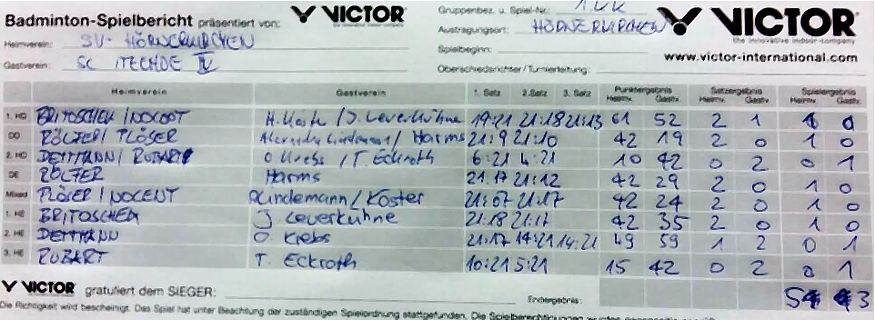 Badminton-Spielbericht präsentiert von: VICTOR
Gruppenbez. u. Spiel-Nr.: 1.KK VICTOR
the innovative indoor-company
Heimverein: SV- HÖRNERKIRCHEN Austragungsort: HÖRNERKIRCHEN
Gastverein: SC ITECHDE IV Spielbeginn: www.victor-international.com
Oberschiedsrichter / Turnierleitung:
Heimverein Gastverein 1. Satz 2. Satz 3. Satz Punktergebnis Heimv. Gastv. Satzergebnis Heimv. Gastv. Spielergebnis Heimv. Gastv.
1. HD BRITOSCHEN / NOCENT H. / J. Leverkühne 19:21 21:18 21:13 61 52 2 1 1 0
DD RÖLTER / PLÖSER / Harms 21:9 21:10 42 19 2 0 1 0
2. HD DETTMANN / RUBART O Krebs / T. Eckroth 6:21 4:21 10 42 0 2 0 1
DE RÖLTER Harms 21:17 21:12 42 29 2 0 1 0
Mixed PLÖSER / NOCENT A.Lindemann / Köster 21:07 21:17 42 24 2 0 1 0
1. HE BRITOSCHEN J Leverkühne 21:18 21:17 42 35 2 0 1 0
2. HE DETTMANN O. Krebs 21:17 14:21 14:21 49 59 1 2 0 1
3. HE RUBART T. Eckroth 10:21 5:21 15 42 0 2 0 1
VICTOR gratuliert dem SIEGER: Endergebnis: 5 3
Die Richtigkeit wird bescheinigt. Das Spiel hat unter Beachtung der zuständigen Spielordnung stattgefunden. Die